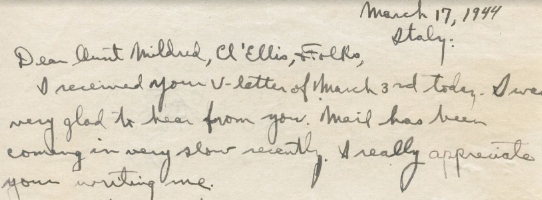 March 17, 1944
Italy:
Dear Aunt Mildred, Cl'Ellis, + Folks,
I received your V-letter of March 3rd today. I was
very glad to hear from you. Mail has been
coming in very slow recently. I really appreciate
your writing me.